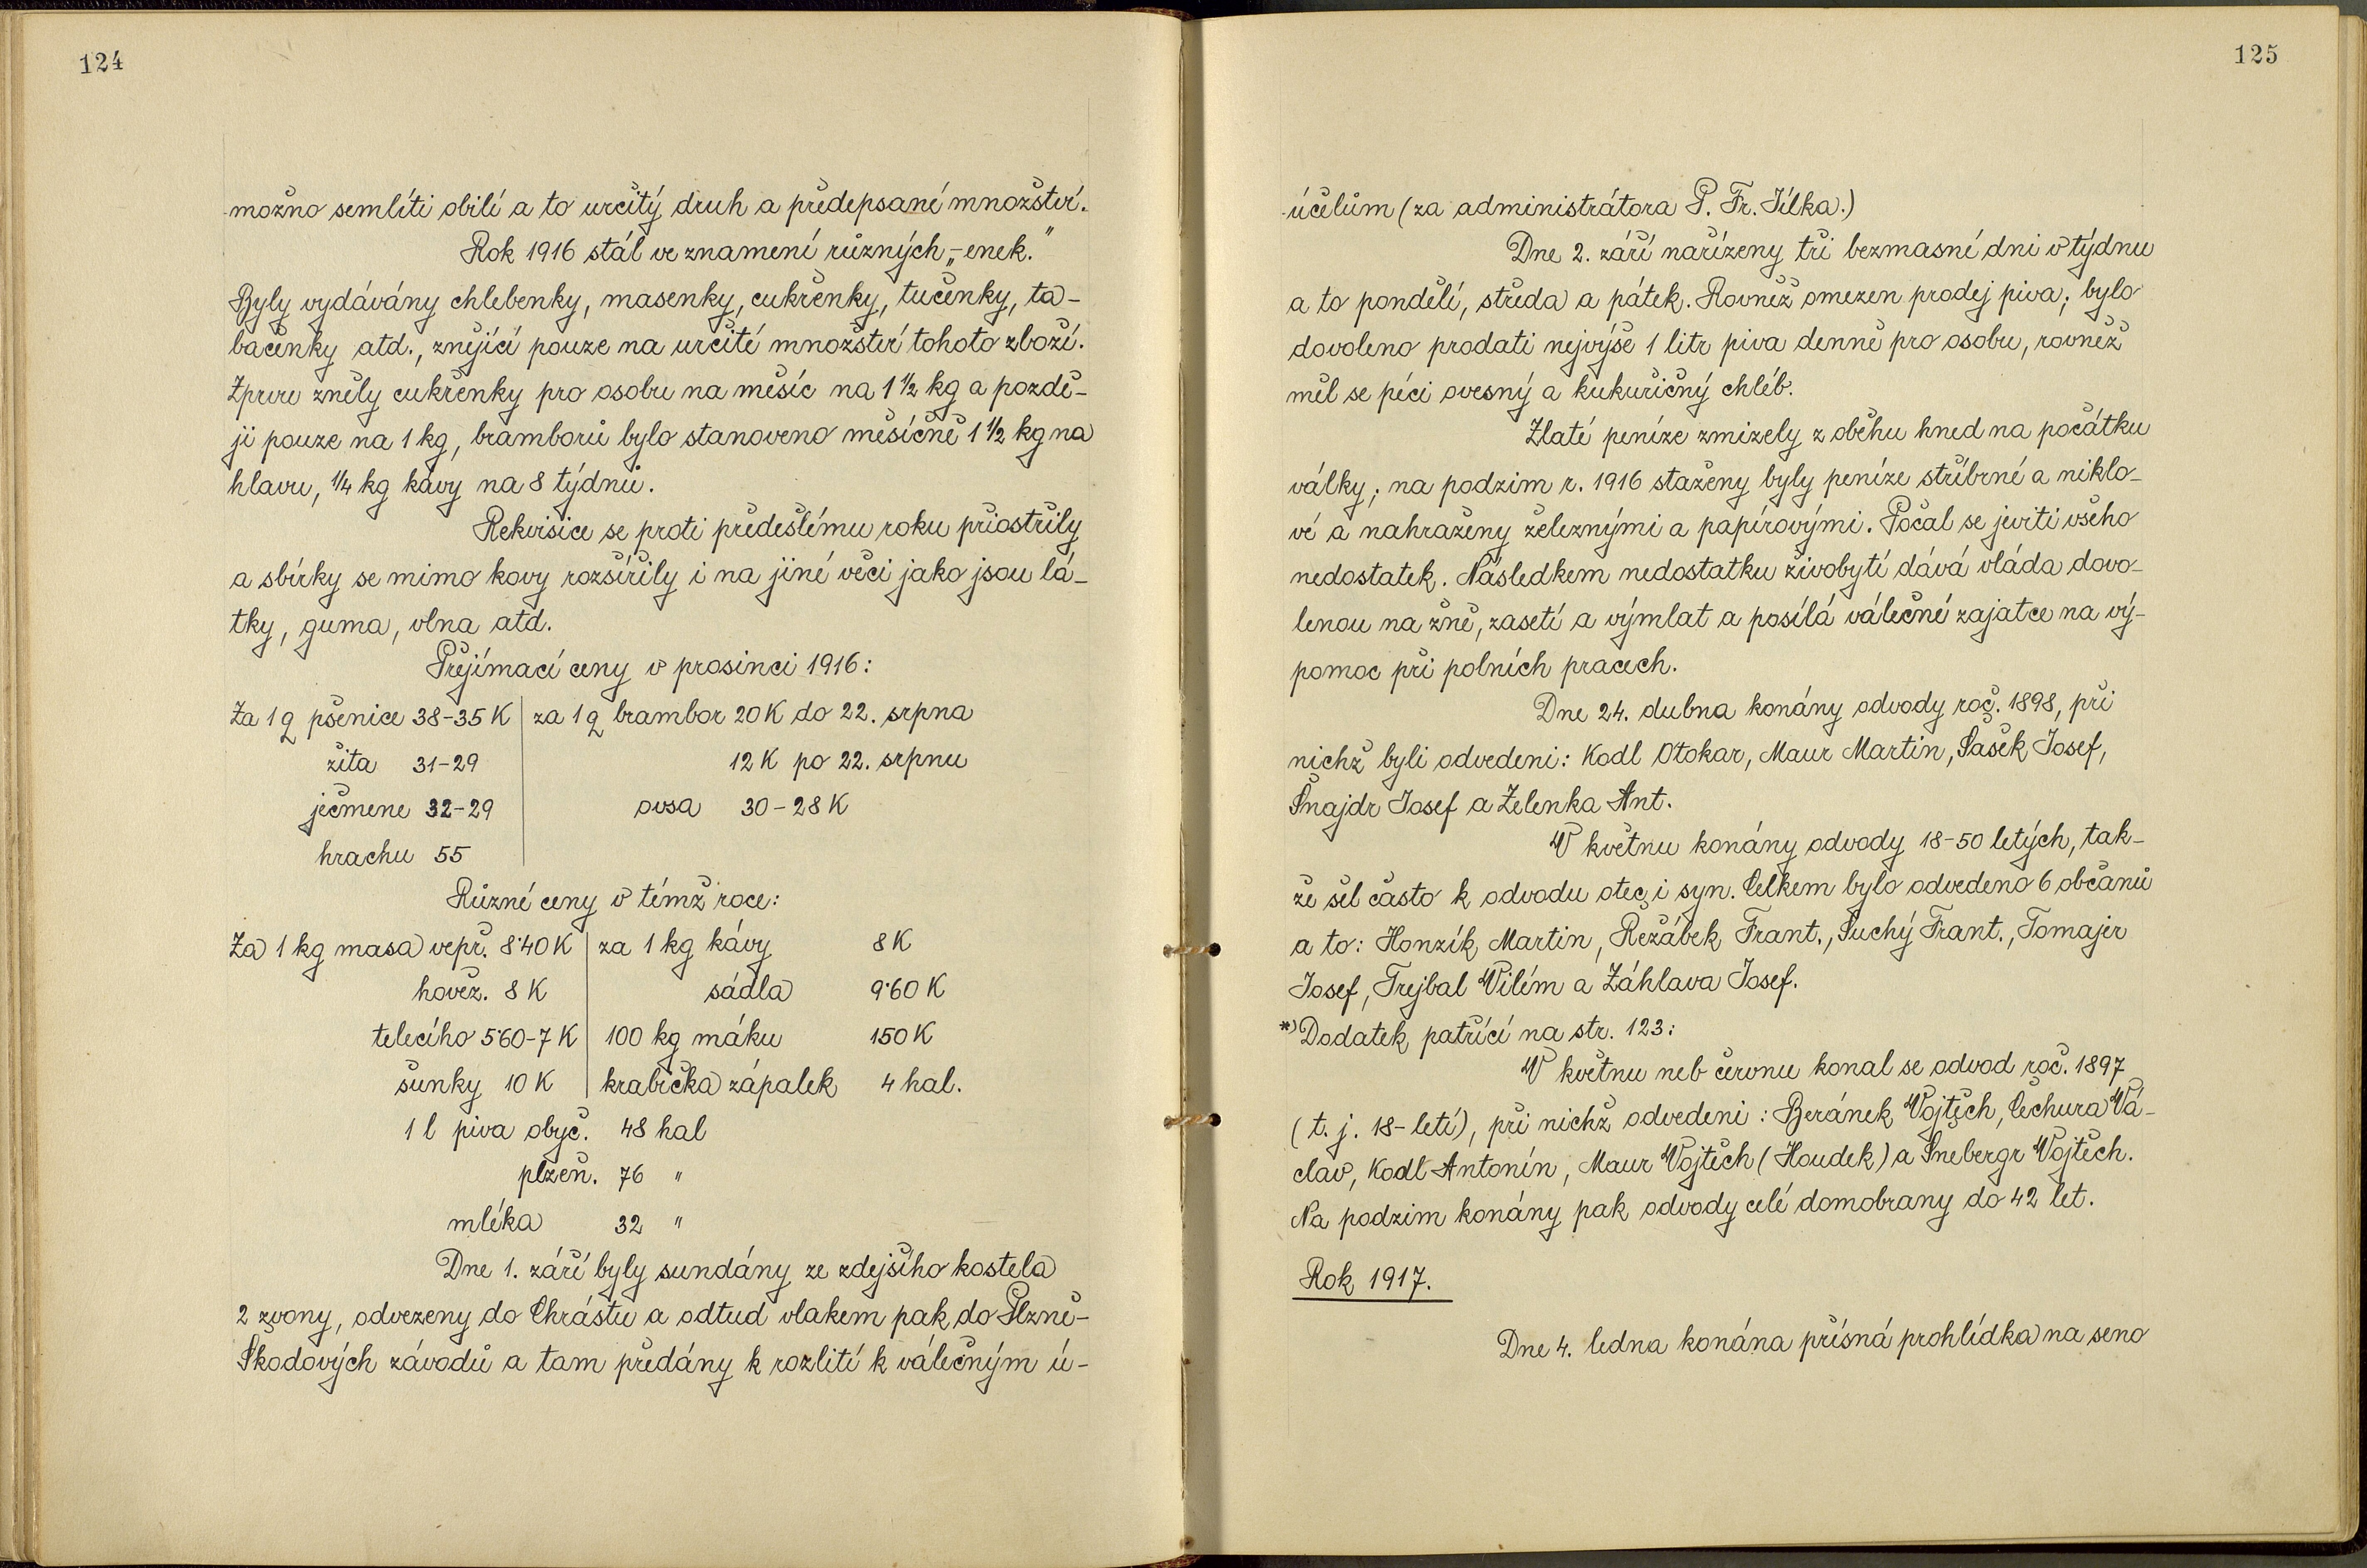 124
možno semlíti obilí a to určitý druh a předepsané množství.
Rok 1916 stál ve znamení různých „-enek."
Byly vydávány chlebenky, masenky, cukřenky, tučenky, ta-
bačenky atd., znějící pouze na určité množství tohoto zboží.
Zprvu zněly cukřenky pro osobu na měsíc na 1 1/2 kg a pozdě-
ji pouze na 1 kg, bramborů bylo stanoveno měsíčně 1 1/2 kg na
hlavu, 1/4 kg kávy na 8 týdnů.
Rekvisice se proti předešlému roku přiostřily
a sbírky se mimo kovy rozšířily i na jiné věci jako jsou lá-
tky, guma, vlna atd.
Přejímací ceny v prosinci 1916:
Za 1 q pšenice 38-35 K | za 1 q brambor 20 K do 22. srpna
žita 31-29 12 K po 22. srpnu
ječmene 32-29 ovsa 30-28 K
hrachu 55
Různé ceny v témž roce:
Za 1 kg masa vepř. 8·40 K | za 1 kg kávy 8 K
hověz. 8 K sádla 9·60 K
telecího 5·60-7 K | 100 kg máku 150 K
šunky 10 K | krabička zápalek 4 hal.
1 l piva obyč. 48 hal
plzeň. 76 "
mléka 32 "
Dne 1. září byly sundány ze zdejšího kostela
2 zvony, odvezeny do Chrástu a odtud vlakem pak do Plzně-
Škodových závodů a tam předány k rozlití k válečným ú-
125
účelům (za administrátora P. Fr. Jílka.)
Dne 2. září nařízeny tři bezmasné dni v týdnu
a to pondělí, středa a pátek. Rovněž omezen prodej piva; bylo
dovoleno prodati nejvýše 1 litr piva denně pro osobu, rovněž
měl se péci ovesný a kukuřičný chléb.
Zlaté peníze zmizely z oběhu hned na počátku
války; na podzim r. 1916 staženy byly peníze stříbrné a niklo-
vé a nahraženy železnými a papírovými. Počal se jeviti všeho
nedostatek. Následkem nedostatku živobytí dává vláda dovo-
lenou na žně, zasetí a výmlat a posílá válečné zajatce na vý-
pomoc při polních pracech.
Dne 24. dubna konány odvody roč. 1898, při
nichž byli odvedeni: Kodl Otokar, Maur Martin, Šašek Josef,
Šnajdr Josef a Zelenka Ant.
V květnu konány odvody 18-50 letých, tak-
že šel často k odvodu otec i syn. Celkem bylo odvedeno 6 občanů
a to: Honzík Martin, Řežábek Frant., Suchý Frant., Tomajer
Josef, Trejbal Vilém a Záhlava Josef.
*) Dodatek patřící na str. 123:
V květnu neb červnu konal se odvod roč. 1897
(t. j. 18-letí), při nichž odvedeni: Beránek Vojtěch, Čechura Vá-
clav, Kodl Antonín, Maur Vojtěch (Houdek) a Šnebergr Vojtěch.
Na podzim konány pak odvody celé domobrany do 42 let.
Rok 1917.
Dne 4. ledna konána přísná prohlídka na seno